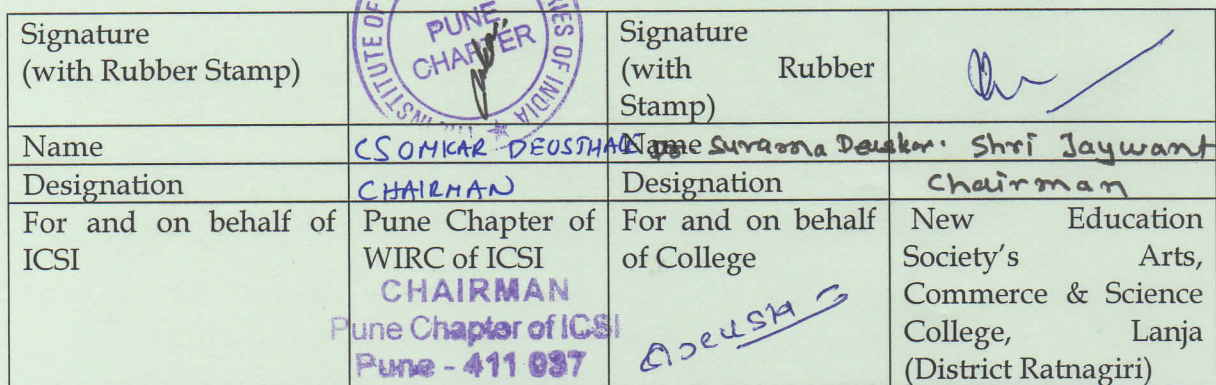 INSTITUTE OF
RIES OF INDIA
PUNE
CHAPTER
Signature
(with Rubber Stamp)
Signature
(with Rubber
Stamp)
Name CS OMKAR Name Suvarna Shri Jaywant
Designation CHAIRMAN Designation Chairman
For and on behalf of
ICSI
Pune Chapter of
WIRC of ICSI
CHAIRMAN
Pune Chapter of ICSI
Pune - 411 037
For and on behalf
of College
New Education
Society's Arts,
Commerce & Science
College, Lanja
(District Ratnagiri)